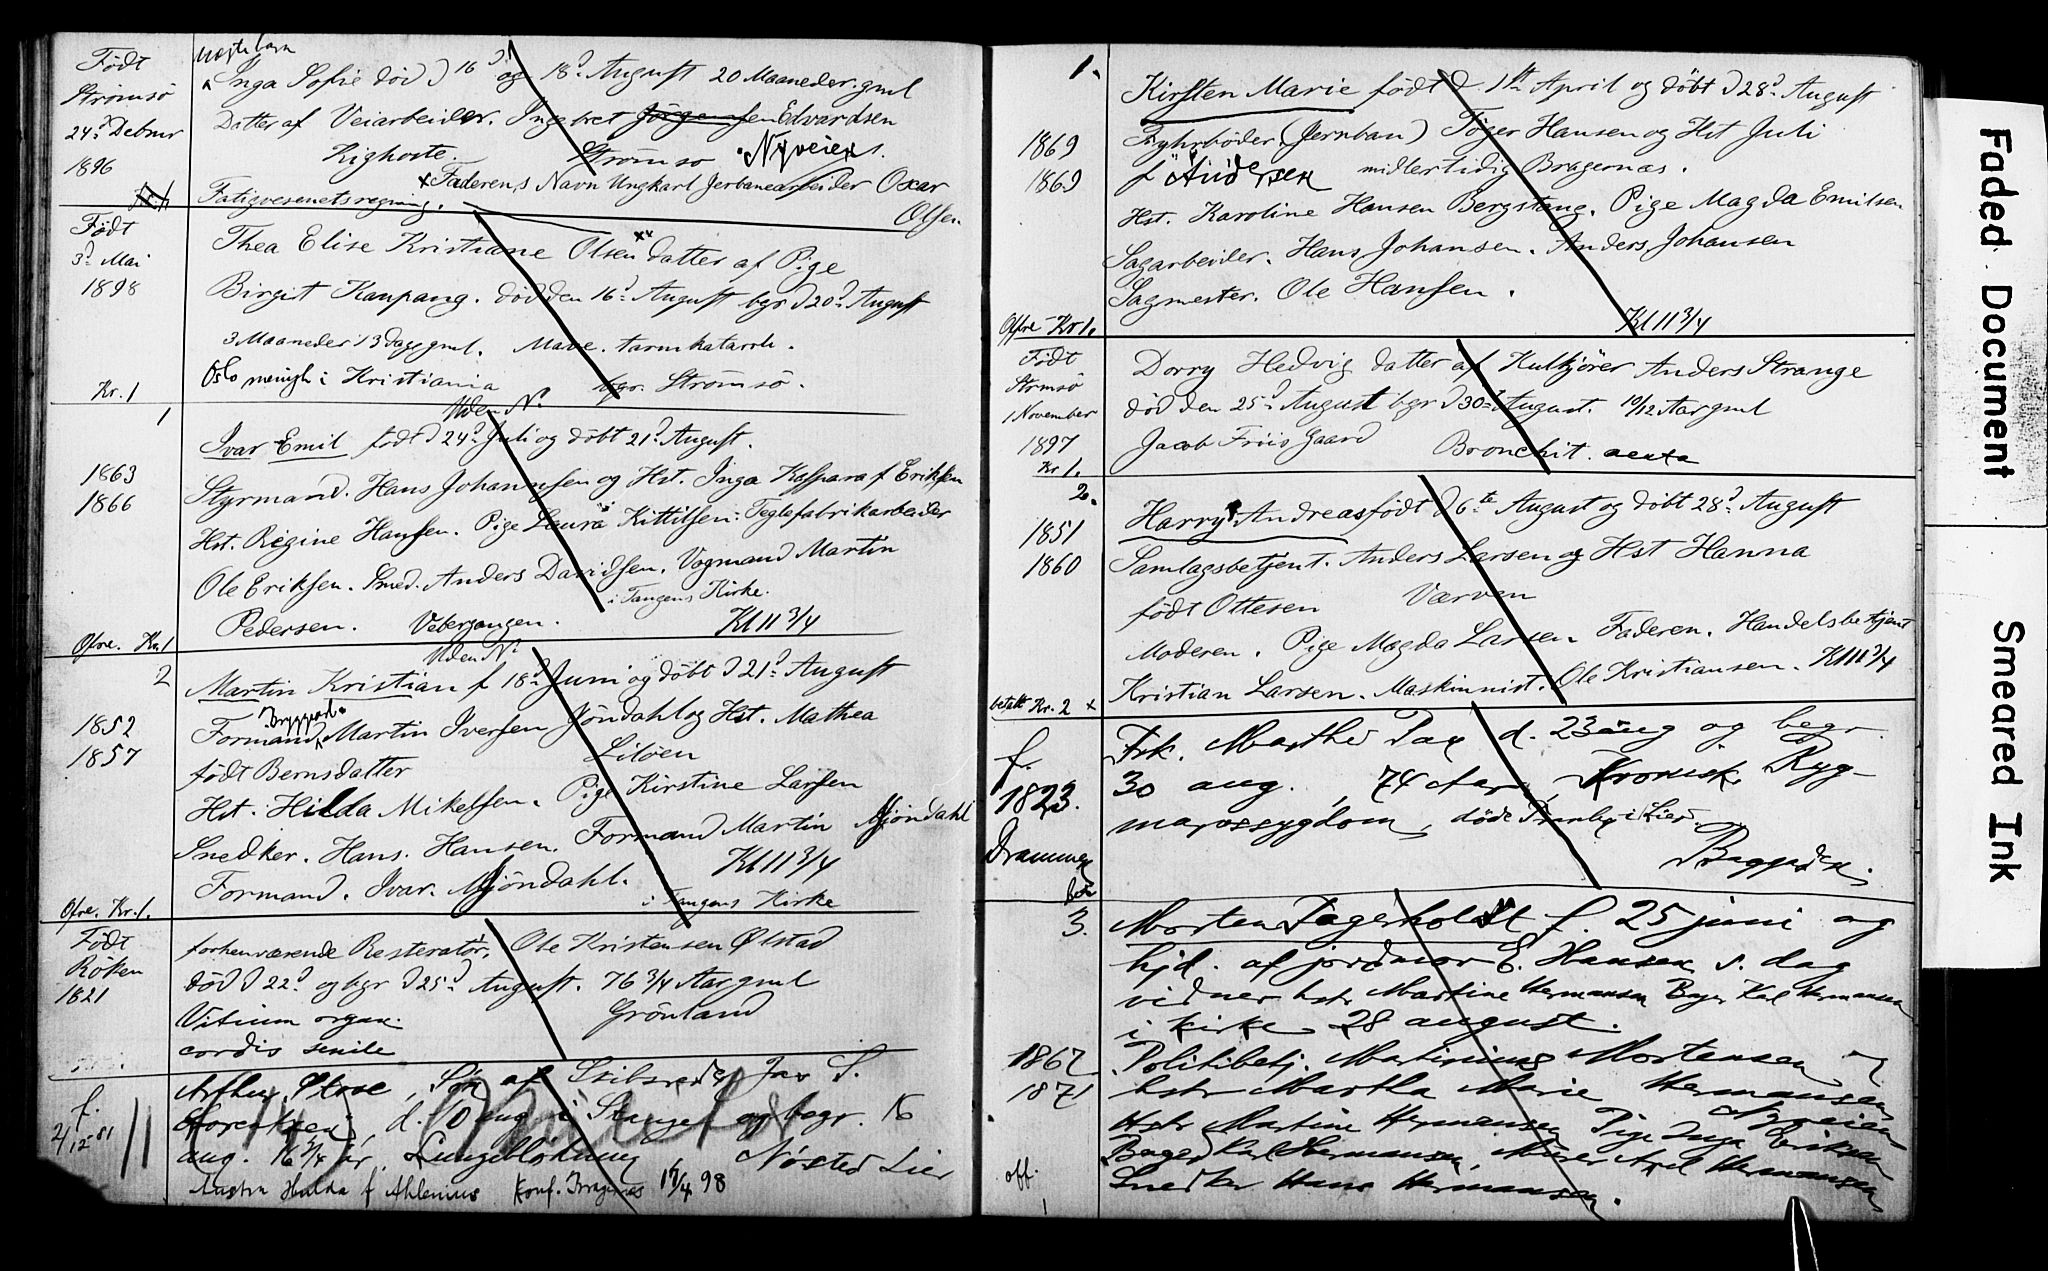 Født
Strømsø
24? Debmr
1896
uægte barn
Inga Sofie død d 16? og 18? August 20 Maaneder gml
Datter af Veiarbeider. Ingebret Jörgensen Edvardsen
Kighoste. Strømsø Nyveien.
x Faderens Navn Ungkarl Jerbanearbeider Oscar
Olsen
Fatigvesenets regning.
Født
3? Mai
1898
Kr. 1
Thea Elise Kristiane Olsen datter af Pige
Birgit Kaupang. død den 16? August bgr d 20? August
3 Maaneder 13 dage gml. Mave. tarmkatarrh.
Oslo menigh i Kristiania bgr. Strømsø.
1
1863
1866
Ofre. Kr. 1
Uden No
Ivar Emil født d 24? Juli og döbt 21? August.
Styrmand. Hans Johannesen og Hst. Inga Kaspara f Eriksen
Hst. Regine Hansen. Pige Laura Kittilsen: Teglefabrikarbeider
Ole Eriksen. Smed. Anders Davidsen. Vogmand Martin
i Tangens Kirke.
Pedersen. Vebergangen. Kl 11 3/4
2
1852
1857
Ofre. Kr. 1.
Uden No
Martin Kristian f 18? Juni og döbt d 21? August
Formand Martin Iversen Mjöndahl og Hst. Mathea
født Berntsdatter Liløen
Hst. Hilda Mikelsen. Pige Kirstine Larsen
Snedker. Hans. Hansen. Formand Martin Mjöndahl
Formand. Ivar. Mjöndahl. Kl 11 3/4
i Tangens Kirke
Født
Røken
1821
forhenværende Resteratør. Ole Kristensen Ølstad
død d 22? og bgr d 25? August. 76 3/4 Aar gml
Vitium organ. Grönland
cordis senile
f.
2/12 81
Arthur Strøe, Søn af Skibsreder Jax S.
Lorentzen, d. 10 aug i Stanget og begr. 16
aug. 16 3/4 år, Lungeblødning Nøsted Lier
Austra Hulda f Ahlenius Konf. Bragenes 17/4 98
1.
1869
1869
Ofre Kr 1.
Kirsten Marie født d. 1ste April og döbt d 28? August
Fyhrböder (Jernban) Töger Hansen og Hst Juli
f Andersen midlertidig Bragernæs.
Hst. Karoline Hansen Bergstang. Pige Magda Emilsen
Sagarbeider. Hans Johansen. Anders Johansen
Sagmester. Ole Hansen.
Kl 11 3/4
Født
Strmsö
1 November
1897
Kr 1.
Dorry Hedvig datter af Kulkjörer Anders Strange
död den 25? August bgr d 30? August. 10/12 Aar gml
Jacob Friis Gaard Bronchit. acuta
2.
1851
1860
betalt Kr. 2 x
Harry Andreas födt d 6te August og döbt 28? August
Samlagsbetjent. Anders Larsen og Hst Hanna
födt Ottesen Værven
Moderen. Pige Magda Larsen. Faderen. Handelsbetjent
Kristian Larsen. Maskinnist. Ole Kristiansen. Kl 11 3/4
f.
1823.
Drammen
Frk. Marthe Pax d. 23 aug og begr.
30 aug., 74 Aar, Kronisk Ryg-
marvssygdom, døde Tranby i Lier.
3.
1867
1871
off.
1
Morten Fagerholdt f. 25 juni og
hjd. af jordmor E. Hansen s. dag
vidner hstr Martine Hermansen Bager Karl Hermansen
i kirke 28 august.
Politibetj. Martinius Mortensen og
hstr Martha Marie Hermansen
Nyveien
Hstr Martine Hermansen Pige Inga Eriksen
Bager Karl Hermansen, Murer Axel Hermansen
Snedker Hans Hermansen.
Faded Document
Smeared Ink